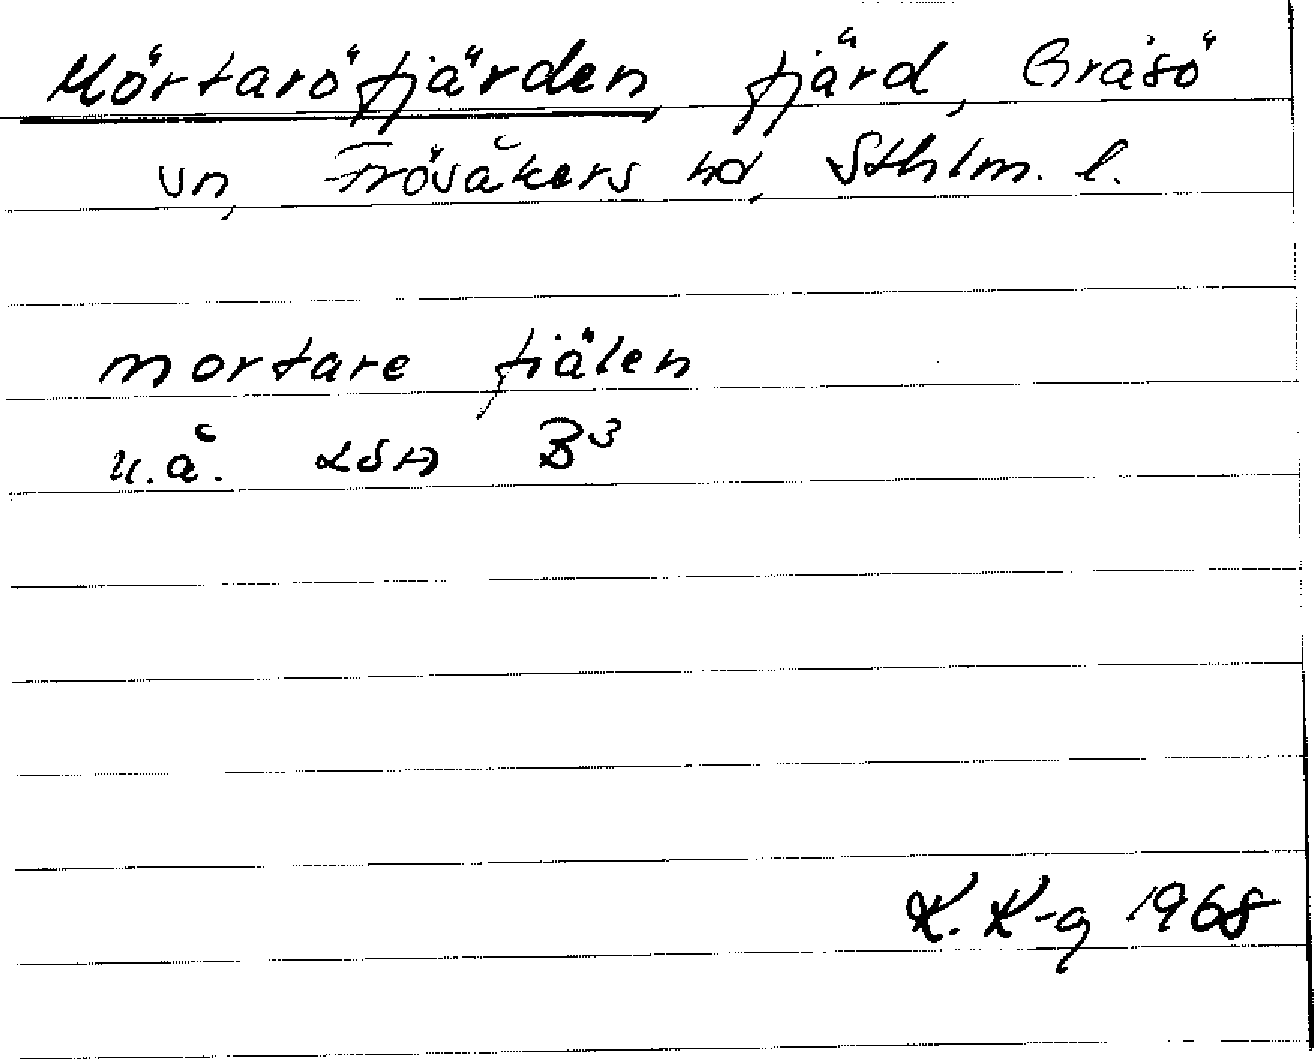 Mörtaröfjärden, fjärd, Gräsö
sn, Frösåkers hd, Sthlm. l.
mortare fiälen
u.å. LSA B3
K. K-g 1968